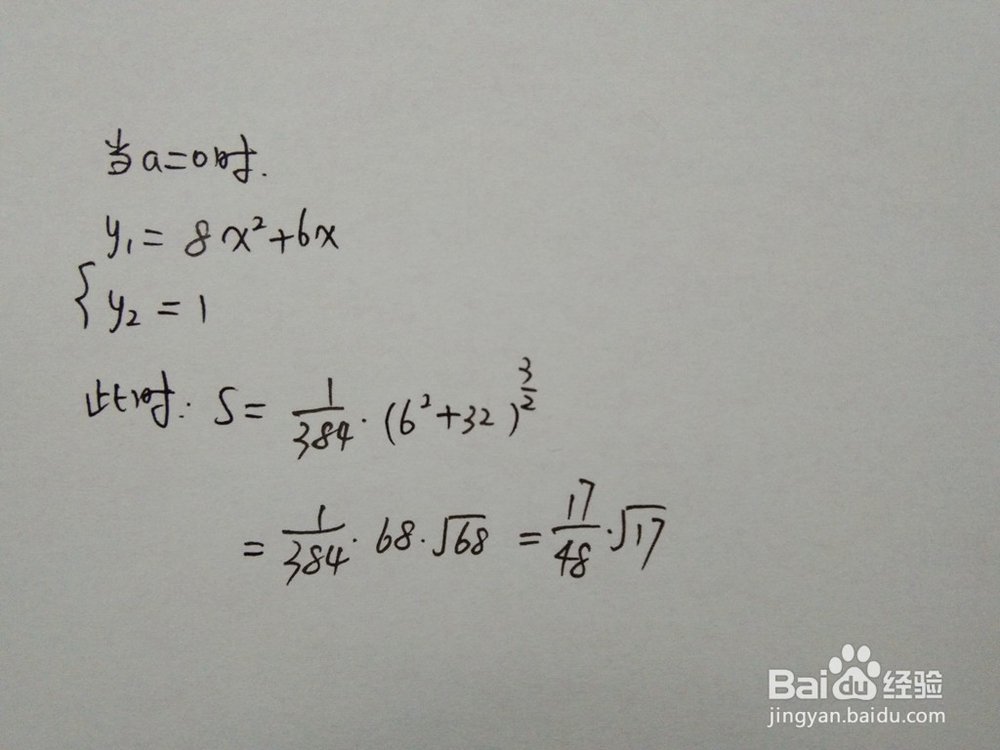 当a=0时.
y₁ = 8x²+6x
{ y₂ = 1
此时: S = 1/384 · (6²+32)^(3/2)
= 1/384 · 68 · √68 = 17/48 · √17
Baidu 经验
jingyan.baidu.com